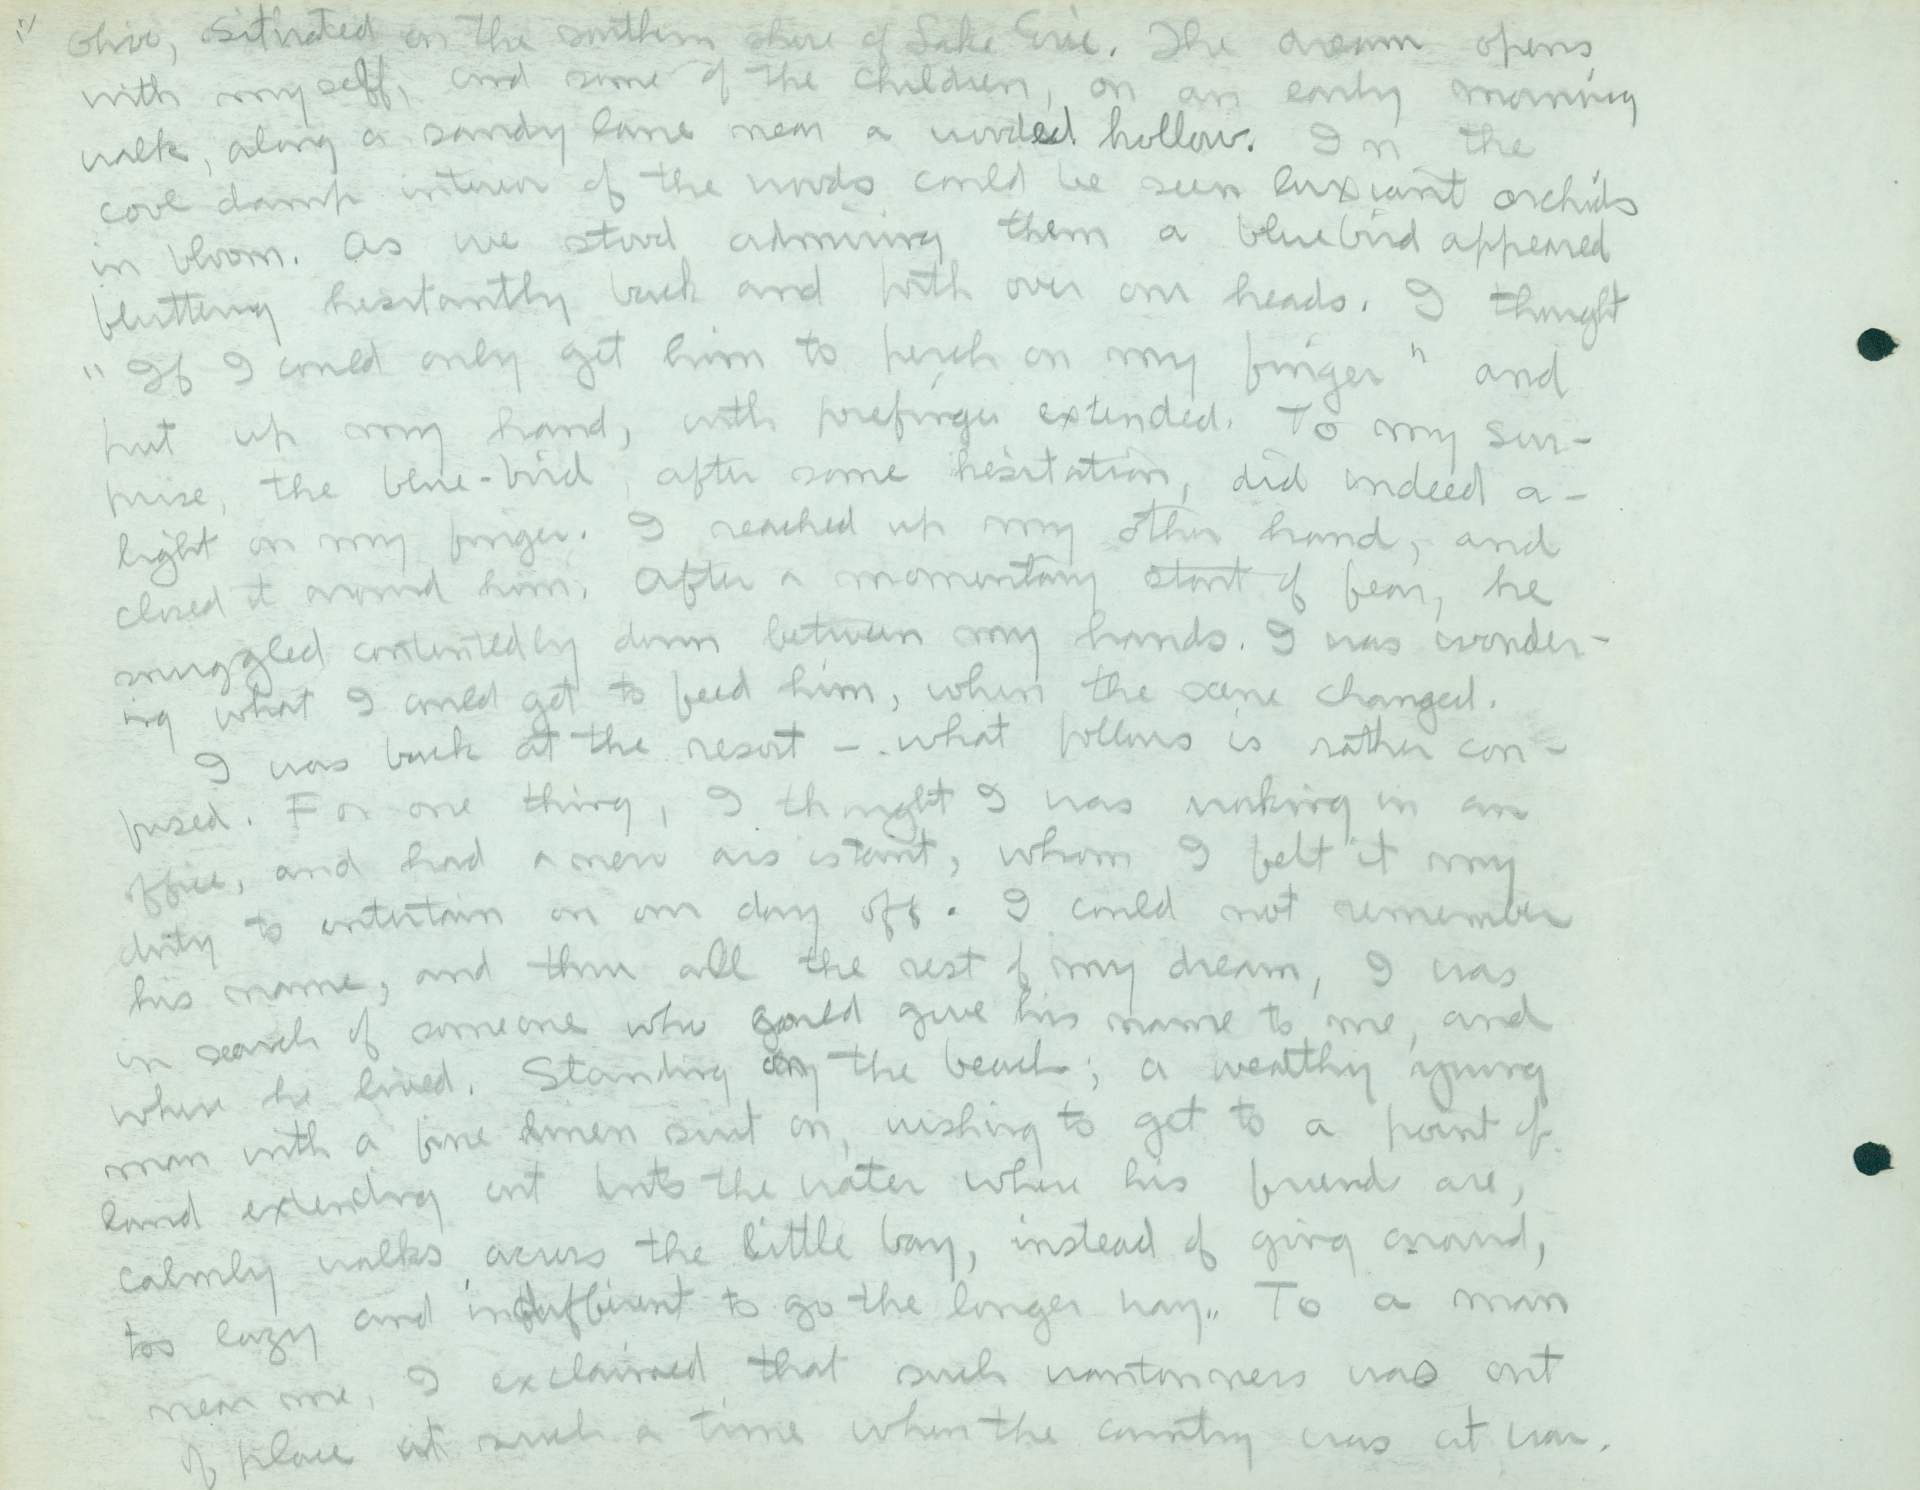 Ohio, situated on the southern shore of Lake Erie. The dream opens
with myself, and some of the children, on an early morning
walk, along a sandy lane near a wooded hollow. In the
cool damp interior of the woods could be seen luxuriant orchids
in bloom. As we stood admiring them a bluebird appeared
fluttering hesitantly back and forth over our heads. I thought
"If I could only get him to perch on my finger" and
put up my hand, with forefinger extended. To my sur-
prise, the blue-bird, after some hesitation, did indeed a-
light on my finger. I reached up my other hand, and
closed it around him. After a momentary start of fear, he
snuggled contentedly down between my hands. I was wonder-
ing what I could get to feed him, when the scene changed.
I was back at the resort - what follows is rather con-
fused. For one thing, I thought I was working in an
office, and had a new assistant, whom I felt it my
duty to entertain on our day off. I could not remember
his name, and thru all the rest of my dream, I was
in search of someone who could give his name to me, and
where he lived. Standing on the beach; a wealthy young
man with a fine linen suit on, wishing to get to a point of
land extending out into the water where his friends are,
calmly walks across the little bay, instead of going around,
too lazy and indifferent to go the longer way. To a man
near me, I exclaimed that such wantonness was out
of place at such a time when the country was at war.